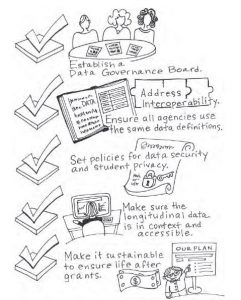 Establish a
Data Governance Board.
DATA
Address
Interoperability.
Ensure all agencies use
the same data definitions.
Set policies for data security
and student privacy.
Make sure the
longitudinal data
is in context and
accessible.
OUR PLAN
Make it sustainable
to ensure life after
grants.